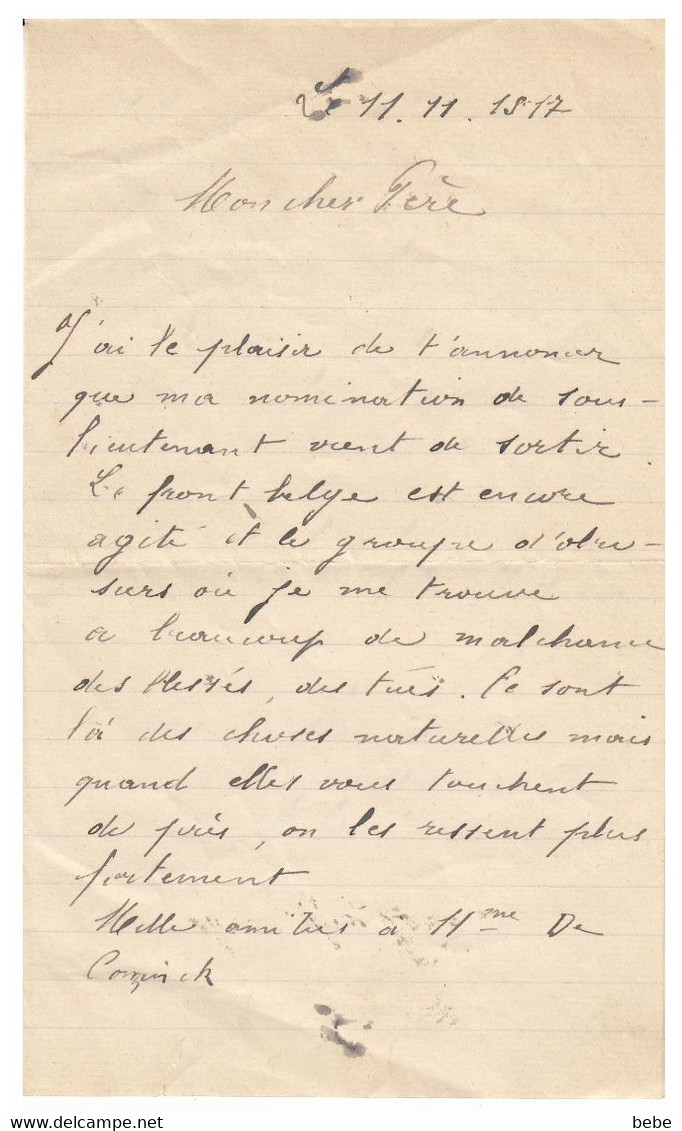 Le 11.11.1917
Mon cher Père
J'ai le plaisir de t'annoncer
que ma nomination de sous-
lieutenant vient de sortir.
Le front belge est encore
agité et le groupe d'obu-
siers où je me trouve
a beaucoup de malchance
des blessés, des tués. Ce sont
là des choses naturelles mais
quand elles vous touchent
de près, on les ressent plus
fortement
Mille amitiés à Mme De
Coninck
bebe